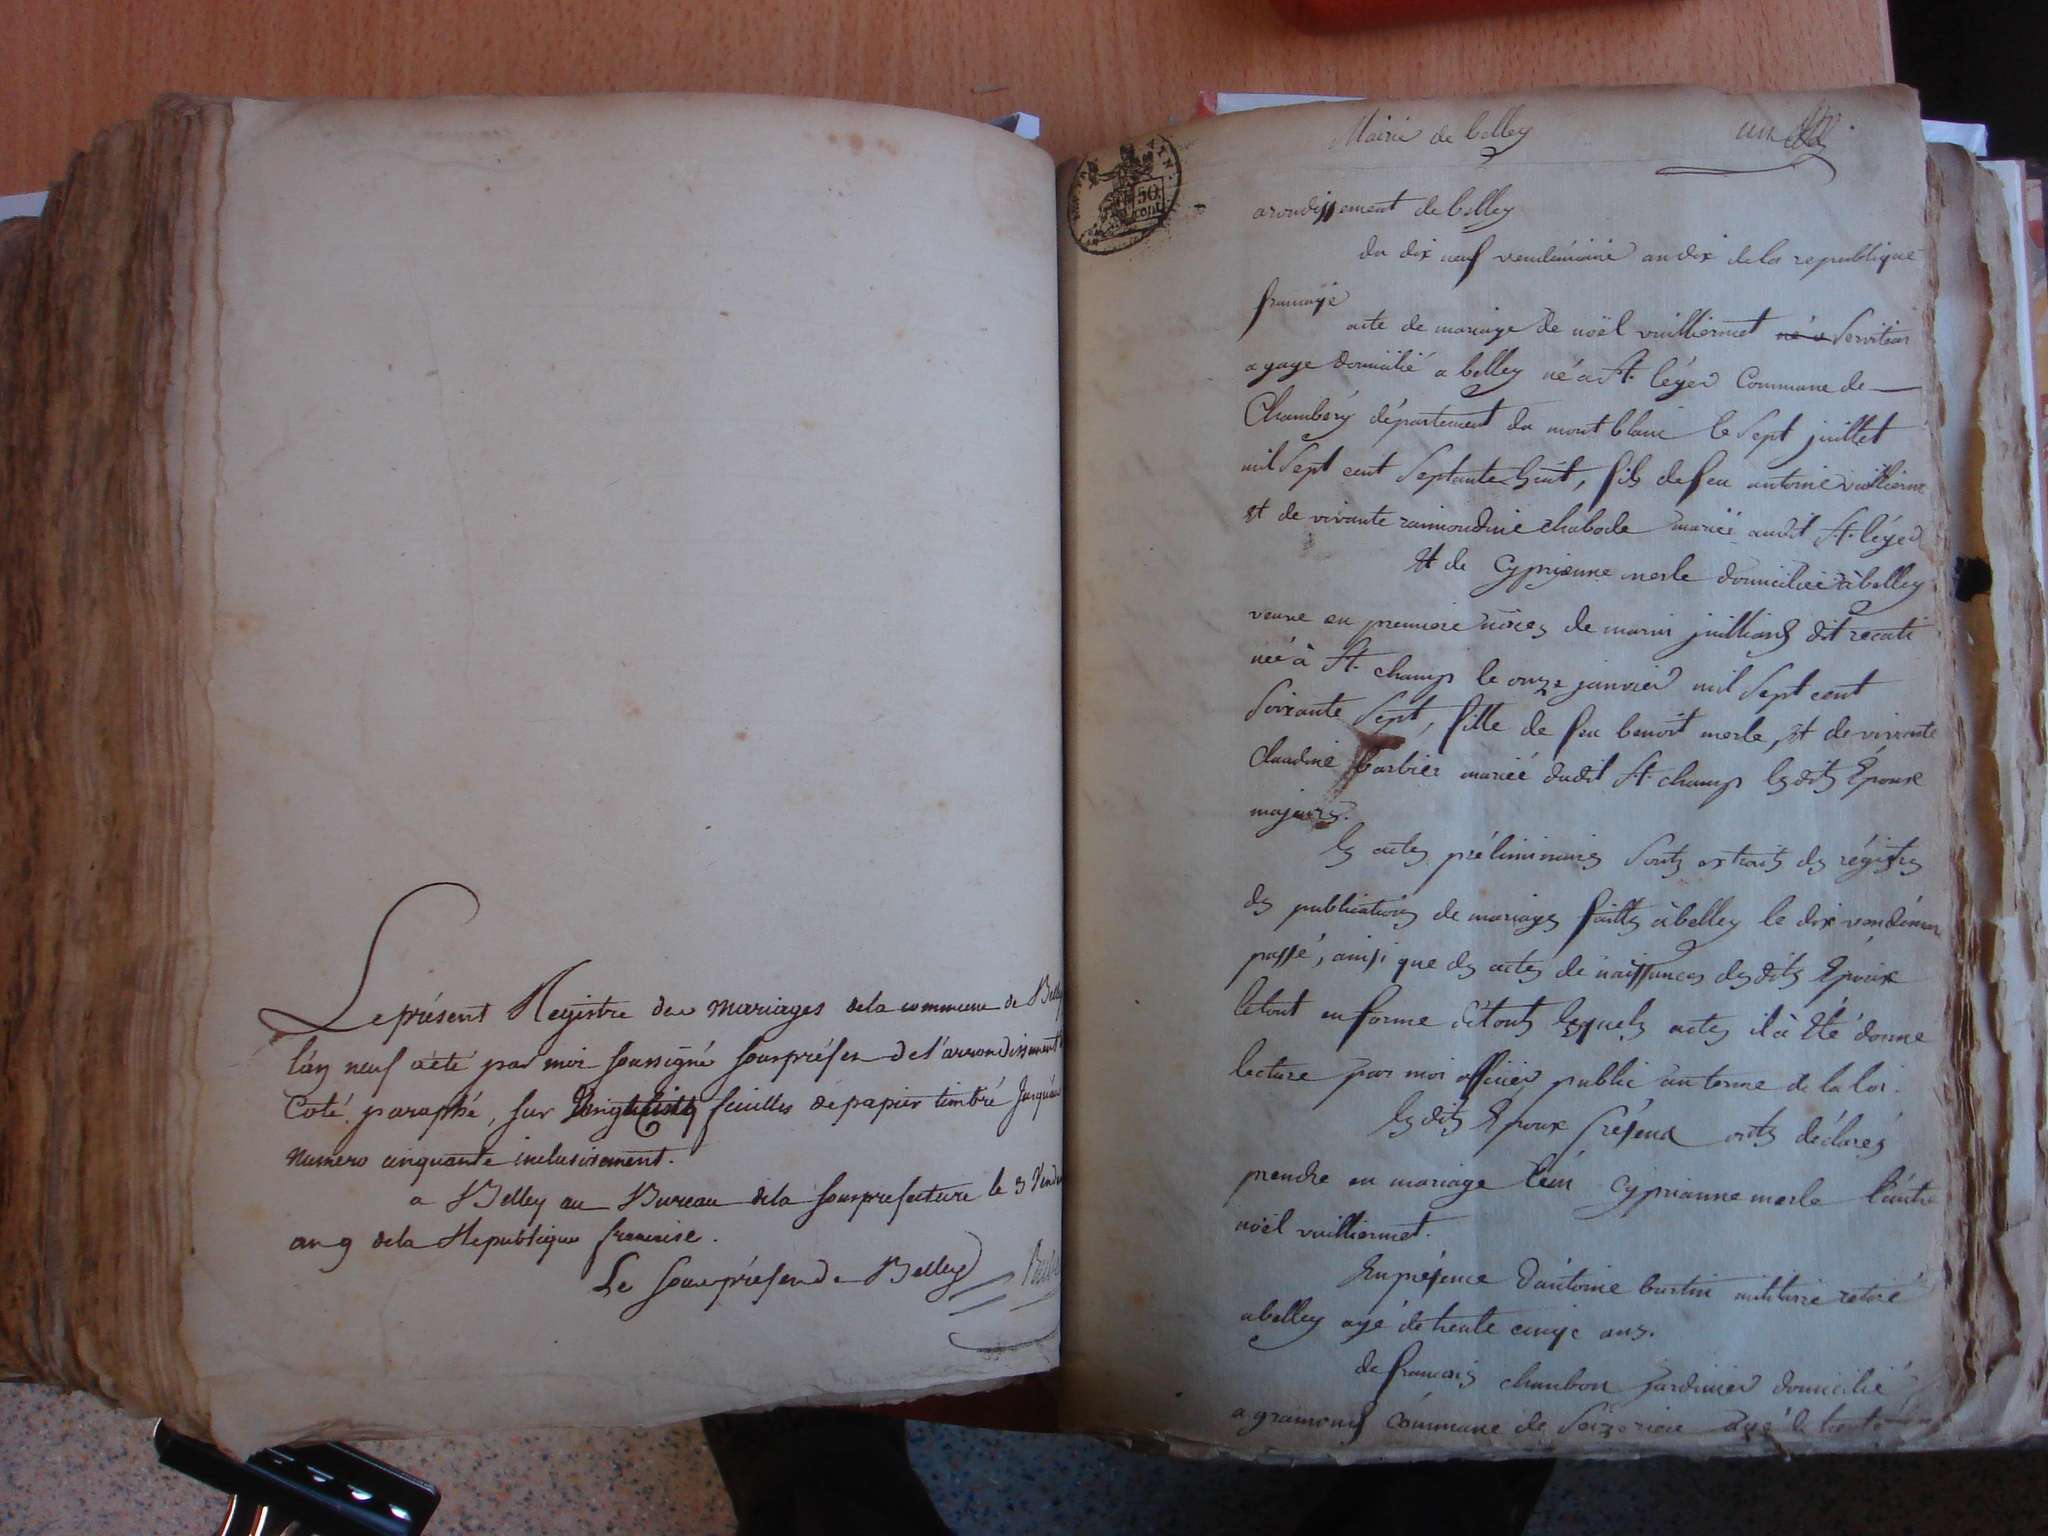 Le présent Registre des mariages de la commune de Belley
l'an neuf a été par moi soussigné souspréfet de l'arrondissement
Coté, paraphé, sur feuilles de papier timbré Jusqu'au
Numero cinquante inclusivement.
a Belley au Bureau de la sousprefecture le 3
an 9 de la Republique francaise.
Le souspréfet de Belley
Mairie de belley un
50
cent
arondissement de belley
du dix neuf vendémiaire an dix de la republique
francaise
acte de mariage de noël vuilliermet né a Serviteur
a gage domicilié a belley né a St. léger Commune de
Chambéry département du mont blanc le sept juillet
mil sept cent septante huit, fils de feu antoine vuillierme
et de vivante raimondine chabode mariés audit St. léger
Et de Cyprienne merle domiciliée à belley
veuve en premiere nôces de marin juilliard dit
née à St. champ le onze janvier mil sept cent
soixante sept, fille de feu benoît merle, et de vivante
Claudine barbier mariés dudit St. champ les dits Époux
majeurs.
les actes préliminaires sonts extraits des régistres
des publications de mariages faittes à belley le dix vendémiai
passé, ainsi que des actes de naissances des dits Époux
le tout en forme de touts lesquels actes il à été donné
lecture par moi officier public au terme de la loi.
les dits Epoux présens onts déclarés
prendre en mariage l'ein Cyprianne merle l'autre
noël vuilliermet.
En présence d'antoine bustin militaire retiré
a belley agé de trente cinqe ans.
de francois chambon jardinier domicilié
a gramond commune de Seizerieu agé de trente